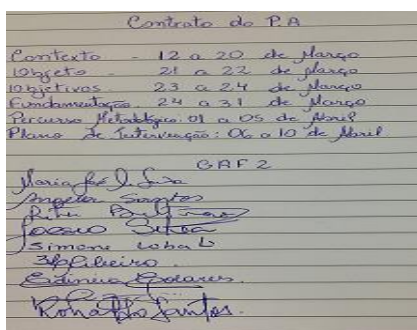 Contrato do P.A
Contexto - 12 a 20 de Março
Objeto - 21 a 22 de Março
Objetivos - 23 a 24 de Março
Fundamentação - 24 a 31 de Março
Percurso Metodológico: 01 a 05 de Abril
Plano de Intervenção: 06 a 10 de Abril
GAF 2
Maria José
Angela Santos
Simone Lobato
Ribeiro
Ronaldo Santos.